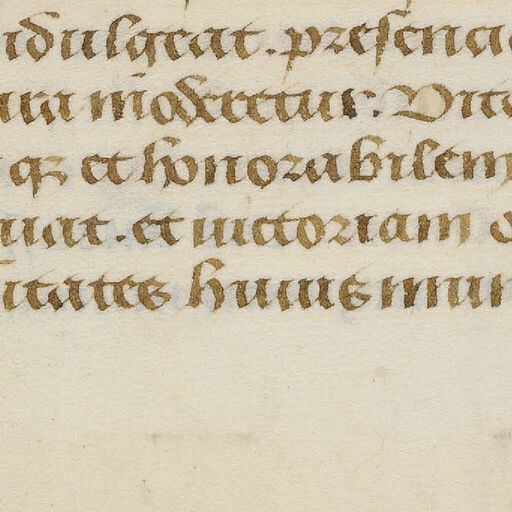 idulgeat. presenci
ara moderetur. Vite
qꝫ et honorabilem
uat. et uictoriam
itates huius mun